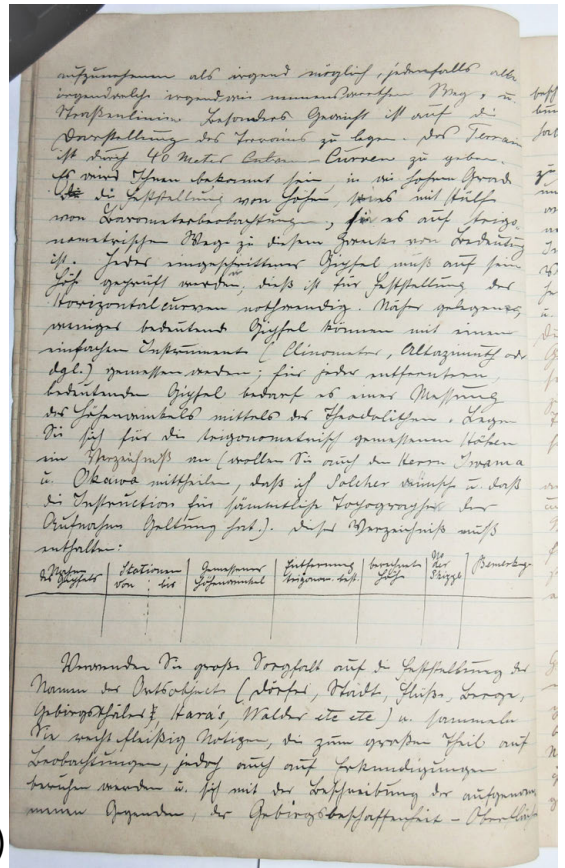 aufzunehmen als irgend möglich, jedenfalls alle
irgendwelche irgendwie nennenswerthen Weg- u.
Straßenlinien. Besonders Gewicht ist auf die
Darstellung des Terrains zu legen. Das Terrain
ist durch 40 Meter Curven zu geben.
Es wird Ihnen bekannt sein, in wie hohem Grade
die Feststellung von Höhen, sei es mit Hülfe
von Barometerbeobachtungen, sei es auf trigo-
nometrischem Wege zu diesem Zwecke von Bedeutung
ist. Jeder eingeschnittene Gipfel muß auf sein
Höh geprüft werden; dieß ist für Feststellung der
Horizontalcurven nothwendig. Näher gelegene,
weniger bedeutende Gipfel können mit einem
einfachen Instrumente (Clinometer, Altazimuth oder
dgl.) gemessen werden; für jeden entfernteren,
bedeutenden Gipfel bedarf es einer Messung
des Höhenwinkels mittels des Theodolithen. Legen
Sie sich für die trigonometrisch gemessenen Höhen
ein Verzeichniß an (wollen Sie auch den Herrn Iwama
u. Okawa mittheilen, daß ich Solches wünsche u. daß
die Instruction für sämmtliche Topographen der
Aufnahme Geltung hat). Dieses Verzeichniß muß
enthalten:
Name des Gipfels | Stationen von : bis | Gemessener Höhenwinkel | Entfernung trigonom. | berechnete Höhe | No der Skizze | Bemerkungen
Verwenden Sie große Sorgfalt auf die Feststellung der
Namen der Ortsobjecte (Dörfer, Städte, Flüße, Berge,
Gebirgsthäler, Hara's, Wälder etc etc) u. sammeln
Sie recht fleißig Notizen, die zum großen Theil auf
Beobachtungen, jedoch auch auf Erkundigungen
beruhen werden u. sich mit der Beschreibung der aufgenom-
menen Gegenden, der Gebirgsbeschaffenheit – Oberfläche